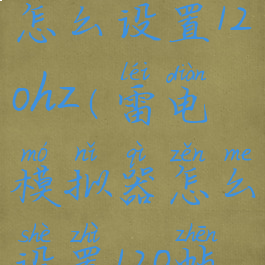 怎么设置12
0hz(雷电
léi diàn
模拟器怎么
mó nǐ qì zěn me
设置120帧
shè zhì zhēn